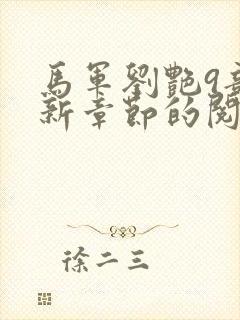 馬軍劉艷9
新章節的閱
徐二三